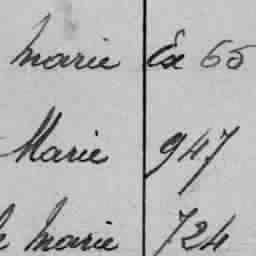 Marie Ex 65
Marie 947
Marie 724